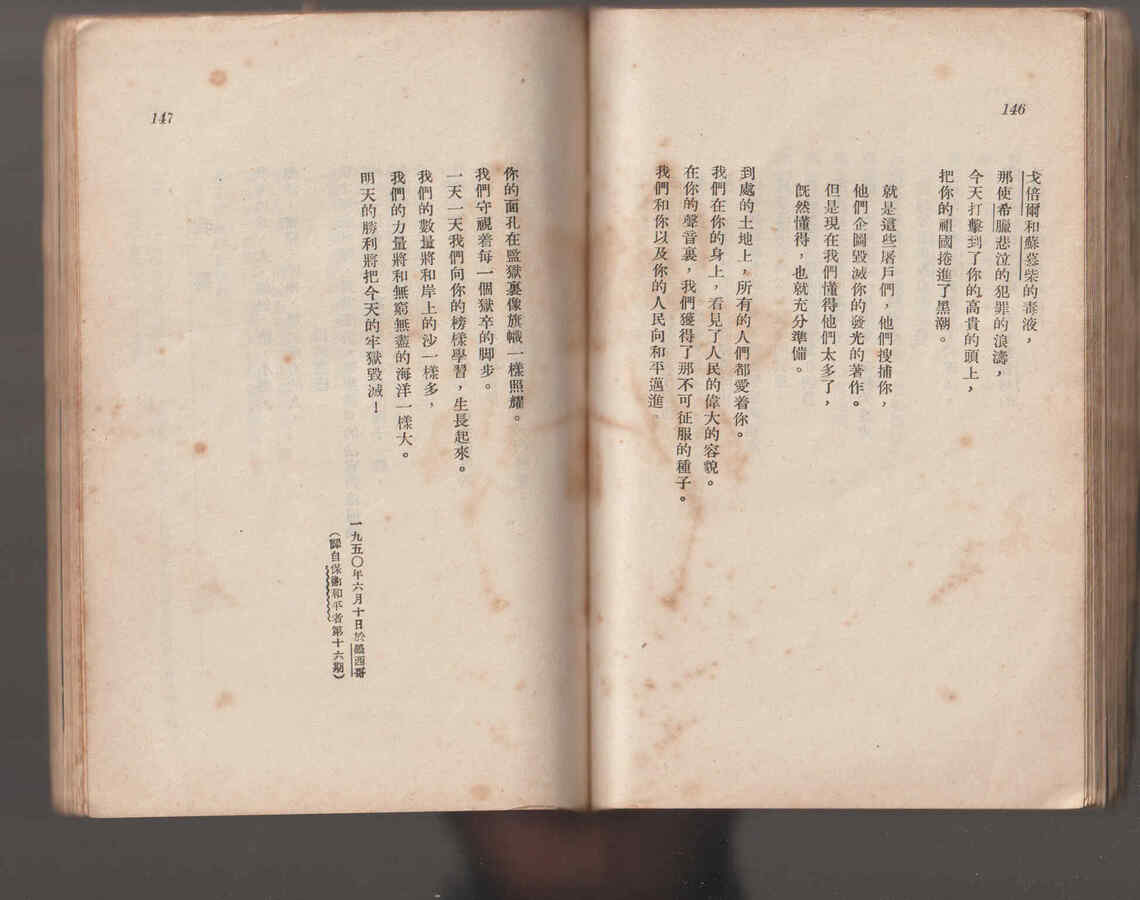 146
戈倍爾和蘇慕柴的毒液，
那使希臘悲泣的犯罪的浪濤，
今天打擊到了你的高貴的頭上，
把你的祖國捲進了黑潮。
就是這些屠戶們，他們搜捕你，
他們企圖毀滅你的發光的著作。
但是現在我們懂得他們太多了，
旣然懂得，也就充分準備。
到處的土地上，所有的人們都愛着你。
我們在你的身上，看見了人民的偉大的容貌。
在你的聲音裏，我們獲得了那不可征服的種子。
我們和你以及你的人民向和平邁進。
147
你的面孔在監獄裏像旗幟一樣照耀。
我們守視着每一個獄卒的脚步。
一天一天我們向你的榜樣學習，生長起來。
我們的數量將和岸上的沙一樣多，
我們的力量將和無窮無盡的海洋一樣大。
明天的勝利將把今天的牢獄毀滅！
一九五〇年六月十日於墨西哥
（譯自保衛和平者第十六期）